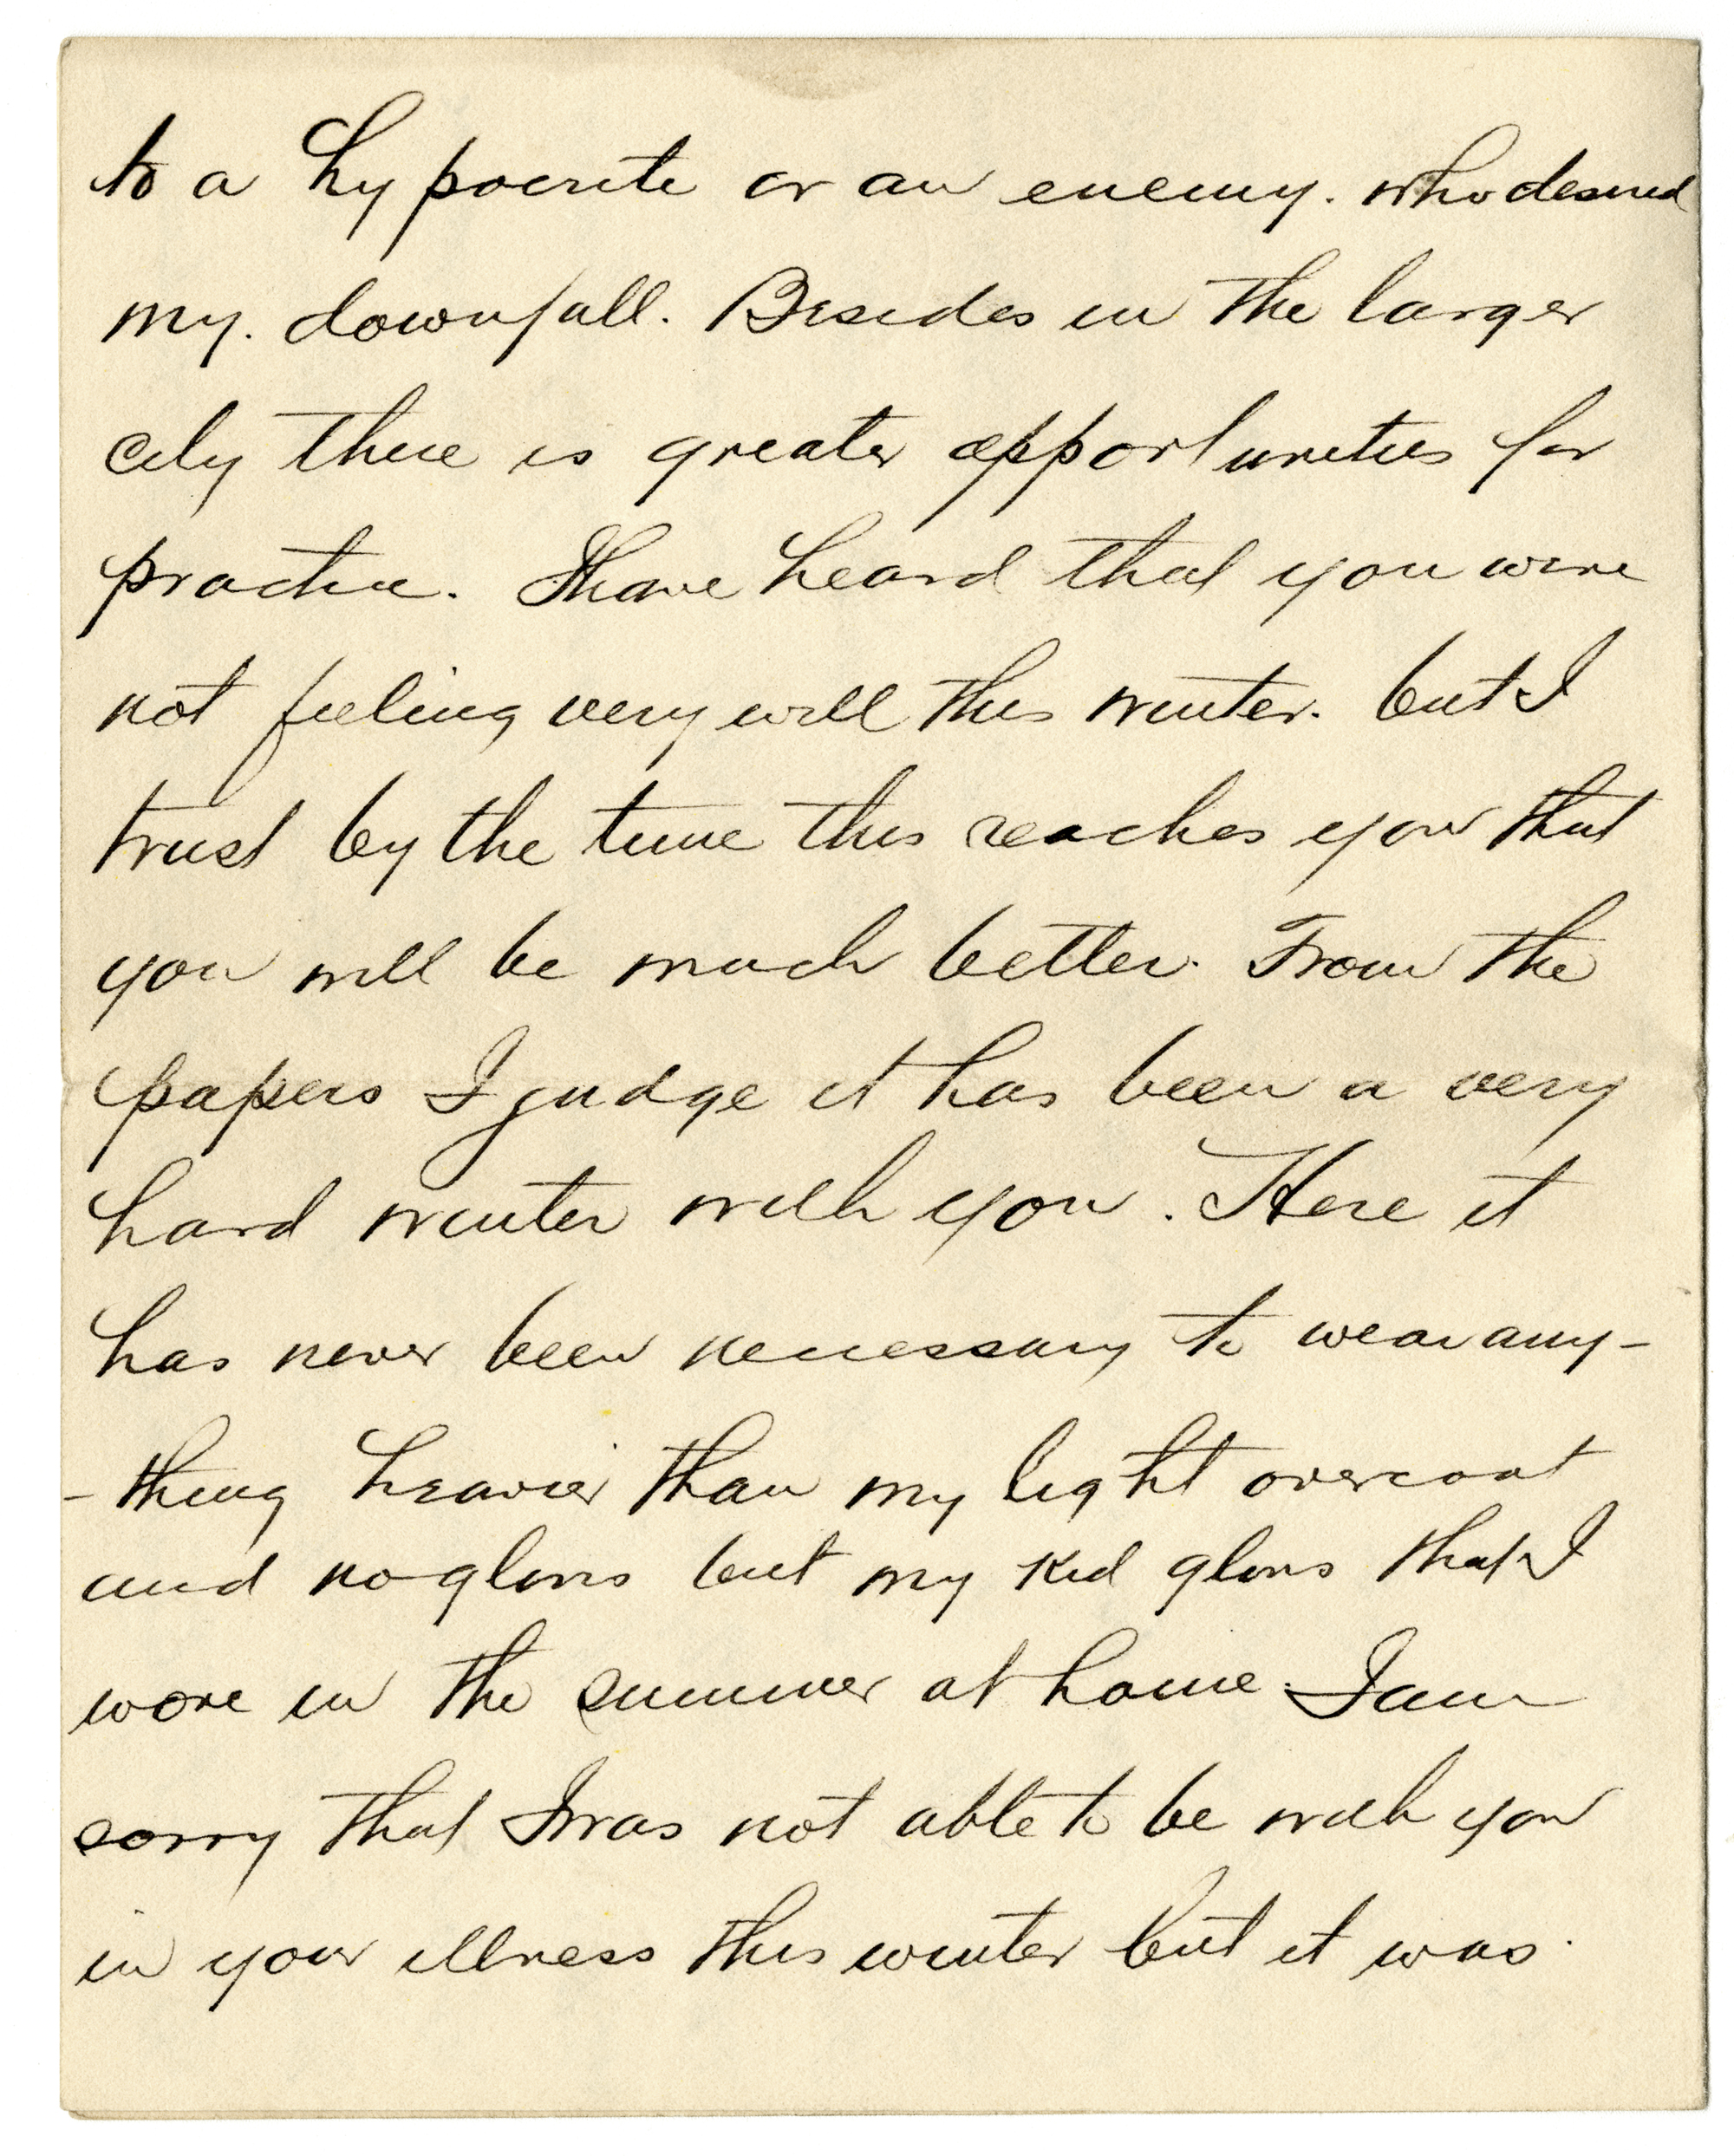 to a hypocrite or an enemy. who desired
my. downfall. Besides in the larger
city there is greater opportunities for
practice. I have heard that you were
not feeling very well this winter. but I
trust by the time this reaches you that
you will be much better. From the
papers I judge it has been a very
hard winter with you. Here it
has never been necessary to wear any-
-thing heavier than my light overcoat
and no gloves but my kid gloves that I
wore in the summer at home. I am
sorry that I was not able to be with you
in your illness this winter but it was.